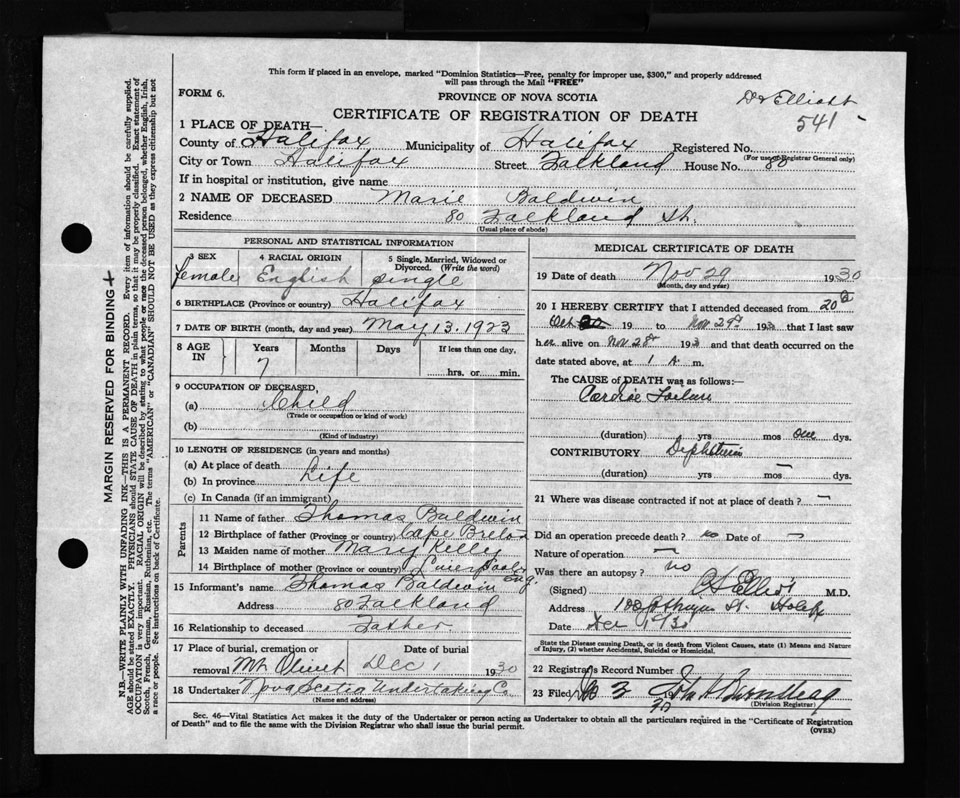 This form if placed in an envelope, marked "Dominion Statistics—Free, penalty for improper use, $300," and properly addressed
will pass through the Mail "FREE"
FORM 6.
PROVINCE OF NOVA SCOTIA
Dr Elliott
541
CERTIFICATE OF REGISTRATION OF DEATH
1 PLACE OF DEATH—
County of Halifax Municipality of Halifax Registered No.
(For use of Registrar General only)
City or Town Halifax Street Falkland House No. 80
If in hospital or institution, give name
2 NAME OF DECEASED Marie Baldwin
Residence 80 Falkland St.
(Usual place of abode)
PERSONAL AND STATISTICAL INFORMATION
3 SEX 4 RACIAL ORIGIN 5 Single, Married, Widowed or Divorced. (Write the word)
Female English Single
6 BIRTHPLACE (Province or country) Halifax
7 DATE OF BIRTH (month, day and year) May 13. 1923
8 AGE IN Years Months Days If less than one day,
7 hrs. or min.
9 OCCUPATION OF DECEASED,
(a) Child
(Trade or occupation or kind of work)
(b)
(Kind of industry)
10 LENGTH OF RESIDENCE (in years and months)
(a) At place of death
(b) In province Life
(c) In Canada (if an immigrant)
Parents
11 Name of father Thomas Baldwin
12 Birthplace of father (Province or country) Cape Breton
13 Maiden name of mother Mary Kelly
14 Birthplace of mother (Province or country) Liverpool Eng.
15 Informant's name Thomas Baldwin
Address 80 Falkland
16 Relationship to deceased Father
17 Place of burial, cremation or removal Mt Olivet Date of burial Dec 1 1930
18 Undertaker Nova Scotia Undertaking Co
(Name and address)
MEDICAL CERTIFICATE OF DEATH
19 Date of death Nov 29 1930
(Month, day and year)
20 I HEREBY CERTIFY that I attended deceased from 20
Oct 19 to Nov 29 193 that I last saw
her alive on Nov 28 193 and that death occurred on the
date stated above, at 1 A. m.
The CAUSE of DEATH was as follows:—
Cardiac Failure
(duration) yrs mos one dys.
CONTRIBUTORY Diphtheria
(duration) yrs mos — dys.
21 Where was disease contracted if not at place of death? —
Did an operation precede death? no Date of —
Nature of operation —
Was there an autopsy? no
(Signed) Elliott M.D.
Address St. Halifax
Date Dec 1st 30
State the Disease causing Death, or in death from Violent Causes, state (1) Means and Nature
of Injury, (2) whether Accidental, Suicidal or Homicidal.
22 Registrar's Record Number
23 Filed 3 19 30
(Division Registrar)
Sec. 46—Vital Statistics Act makes it the duty of the Undertaker or person acting as Undertaker to obtain all the particulars required in the "Certificate of Registration
of Death" and to file the same with the Division Registrar who shall issue the burial permit.
(OVER)
MARGIN RESERVED FOR BINDING
N.B.—WRITE PLAINLY WITH UNFADING INK—THIS IS A PERMANENT RECORD. Every item of information should be carefully supplied.
AGE should be stated EXACTLY. PHYSICIANS should STATE CAUSE OF DEATH in plain terms, so that it may be properly classified. Exact statement of
OCCUPATION is very important. RACIAL ORIGIN will be described by stating to what people or race the deceased person belonged, whether English, Irish,
Scotch, French, German, Russian, Ruthenian, etc. The terms "AMERICAN" or "CANADIAN" SHOULD NOT BE USED as they express citizenship but not
a race or people. See instructions on back of Certificate.